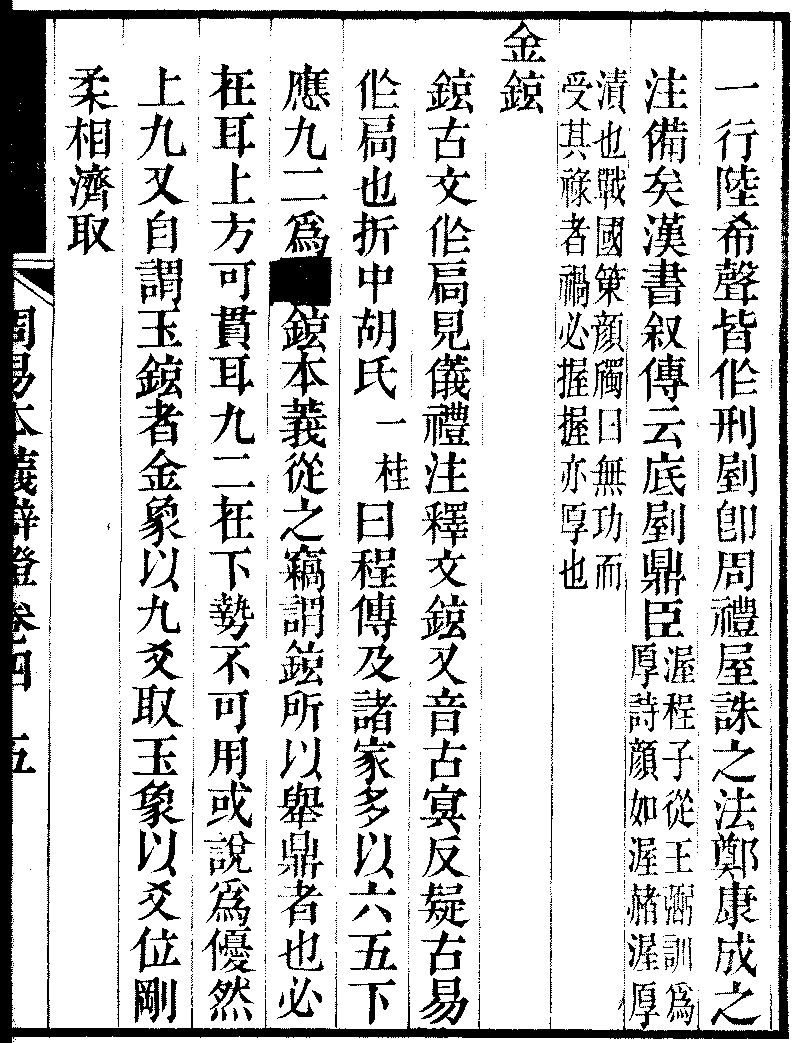 一行陸希聲皆作刑剭卽周禮屋誅之法鄭康成之
注備矣漢書叙傳云底剭鼎臣
渥程子從王弼訓爲
厚詩顏如渥赭渥厚
漬也戰國策顔斶曰無功而
受其祿者禍必握握亦厚也
金鉉
鉉古文作扃見儀禮注釋文鉉又音古冥反疑古易
作扃也折中胡氏一桂曰程傳及諸家多以六五下
應九二爲鉉本義從之竊謂鉉所以舉鼎者也必
在耳上方可貫耳九二在下勢不可用或說爲優然
上九又自謂玉鉉者金象以九爻取玉象以爻位剛
柔相濟取
周易本義辯證卷四 五